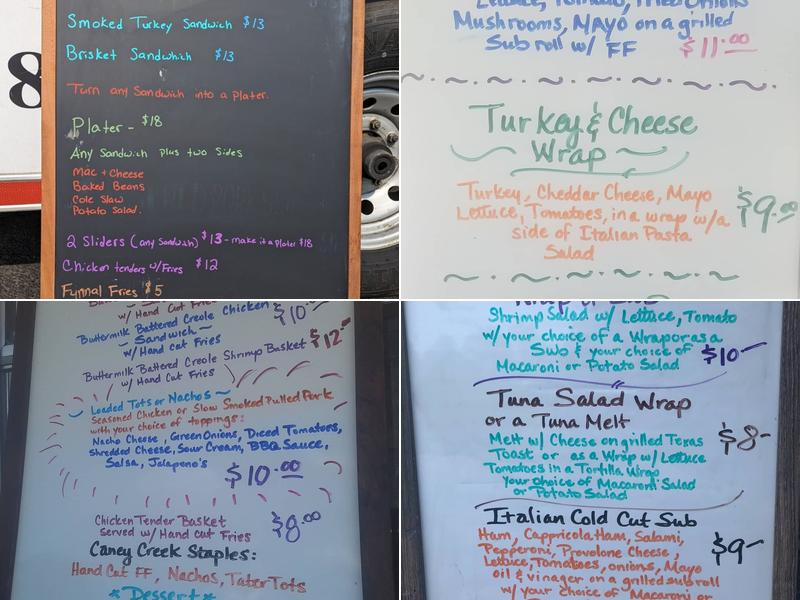 8
Smoked Turkey Sandwich $13
Brisket Sandwhich $13
Turn any Sandwich into a Plater.
Plater - $18
Any Sandwich plus two Sides
Mac + Cheese
Baked Beans
Cole Slaw
Potato Salad.
2 Sliders (any Sandwich) $13 - make it a Plater $18
Chicken tenders w/Fries $12
Fynnal Fries $5
Lettuce, Tomato, Fried Onions
Mushrooms, MAYO on a grilled
Sub roll w/ FF $11.00
Turkey & Cheese
Wrap
Turkey, Cheddar Cheese, Mayo
Lettuce, Tomatoes, in a wrap w/a
side of Italian Pasta
Salad
$9.00
w/ Hand Cut Fries $10.00
Buttermilk Battered Creole Chicken
~ Sandwich ~
w/ Hand cut Fries
Buttermilk Battered Creole Shrimp Basket $12.00
w/ Hand Cut Fries
Loaded Tots or Nachos ~
Seasoned Chicken or Slow Smoked Pulled Pork
with your choice of toppings:
Nacho Cheese, Green Onions, Diced Tomatoes,
Shredded Cheese, Sour Cream, BBQ Sauce,
Salsa, Jalapeno's
$10.00
Chicken Tender Basket
Served w/ Hand Cut Fries $8.00
Caney Creek Staples:
Hand Cut FF, Nachos, Tater Tots
*Dessert*
Wrap or Sub
Shrimp Salad w/ Lettuce, Tomato
w/ your choice of a Wrap or as a
Sub & your choice of $10-
Macaroni or Potato Salad
Tuna Salad Wrap
or a Tuna Melt
Melt w/ Cheese on grilled Texas
Toast or as a Wrap w/ Lettuce
Tomatoes in a Tortilla Wrap
your choice of Macaroni Salad
or Potato Salad
$8-
Italian Cold Cut Sub
Ham, Cappricola Ham, Salami,
Pepperoni, Provolone Cheese,
Lettuce, Tomatoes, onions, Mayo
oil & vinager on a grilled sub roll
w/ your choice of Macaroni or
$9-